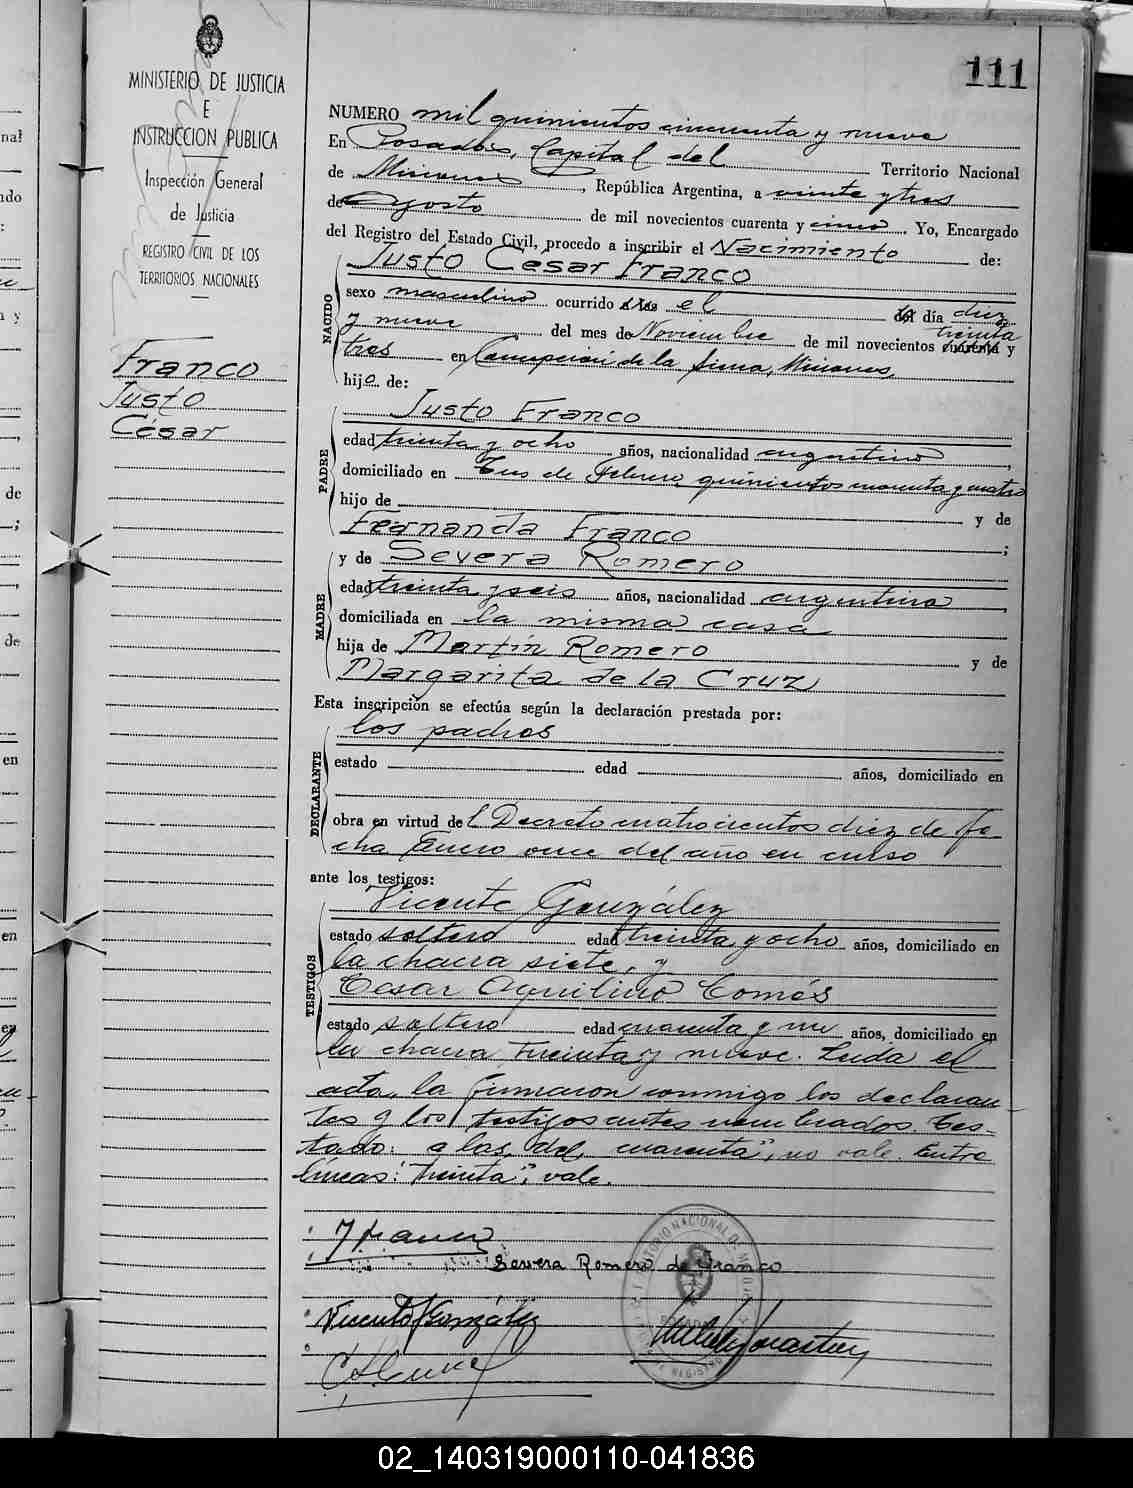 111
MINISTERIO DE JUSTICIA
E
INSTRUCCION PUBLICA
Inspección General
de Justicia
REGISTRO CIVIL DE LOS
TERRITORIOS NACIONALES
Franco
Justo
César
NUMERO mil quinientos cincuenta y nueve
En Posadas, Capital del Territorio Nacional
de Misiones, República Argentina, a veinte y tres
de Agosto de mil novecientos cuarenta y cinco. Yo, Encargado
del Registro del Estado Civil, procedo a inscribir el Nacimiento de:
Justo César Franco
NACIDO
sexo masculino ocurrido a las el del día diez
y nueve del mes de Noviembre de mil novecientos cuarenta y
treinta
tres en Concepción de la Sierra, Misiones,
hijo de:
PADRE
Justo Franco
edad treinta y ocho años, nacionalidad argentino,
domiciliado en Tres de Febrero quinientos cuarenta y cuatro
hijo de y de
Fernanda Franco;
MADRE
y de Severa Romero
edad treinta y seis años, nacionalidad argentina,
domiciliada en la misma casa
hija de Martín Romero y de
Margarita de la Cruz
Esta inscripción se efectúa según la declaración prestada por:
los padres
DECLARANTE
estado edad años, domiciliado en
obra en virtud del Decreto cuatrocientos diez de fe-
cha Enero once del año en curso
ante los testigos:
TESTIGOS
Vicente González
estado soltero edad treinta y ocho años, domiciliado en
la chacra siete, y
Cesar Aquilino Comés
estado soltero edad cuarenta y un años, domiciliado en
la chacra treinta y nueve. Leída el
acta, la firmaron conmigo los declaran-
tes y los testigos antes nombrados. Tes-
tado: a las, del, cuarenta", no vale. Entre
líneas: "treinta", vale.
J Franco
Severa Romero de Franco
Vicente González
02_140319000110-041836